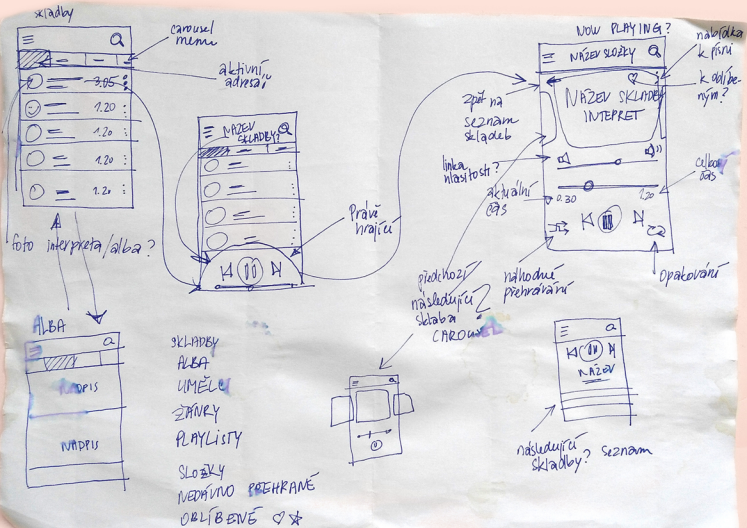 skladby
carousel
menu
aktivní
adresář
3.05
1.20
1.20
1.20
1.20
foto interpreta/alba?
NÁZEV
SKLADBY?
Právě
hrající
NOW PLAYING?
NÁZEV SLOŽKY
nabídka
k písni
k oblíbe-
ným?
NÁZEV SKLADBY
INTEPRET
zpět na
seznam
skladeb
linka
hlasitosti?
aktuální
čas
0.30
1.20
celkový
čas
náhodné
přehrávání
Opakování
předchozí
následující
skladba
CAROUSEL
?
ALBA
NADPIS
NADPIS
SKLADBY
ALBA
UMĚLCI
ŽÁNRY
PLAYLISTY
SLOŽKY
NEDÁVNO PŘEHRANÉ
OBLÍBENÉ ♡ ☆
NÁZEV
následující
skladby? seznam